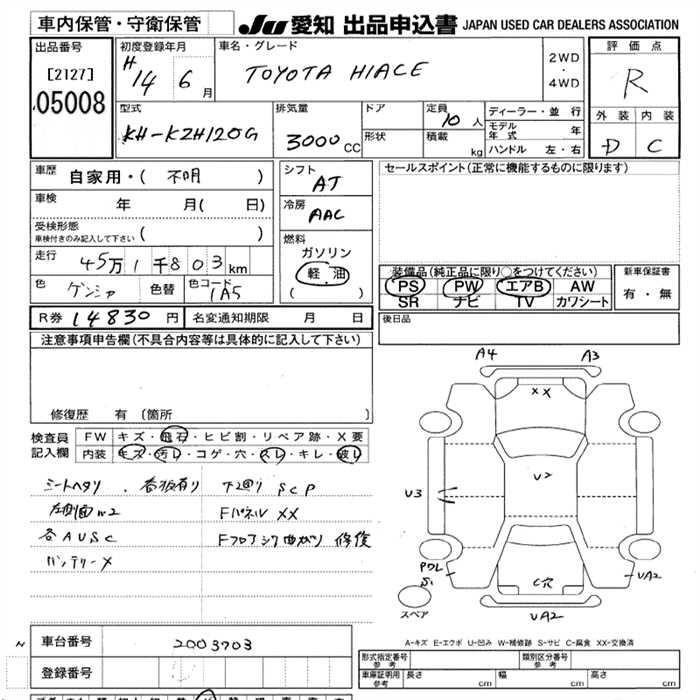 車内保管・守衛保管
JU 愛知 出品申込書 JAPAN USED CAR DEALERS ASSOCIATION
出品番号
[2127]
05008
初度登録年月
H 14 6 月
車名・グレード
TOYOTA HIACE
2WD
・
4WD
評価点
R
外装 内装
D C
型式
KH-KZH120G
排気量
3000 CC
ドア
形状
定員
10 人
積載
kg
ディーラー・並行
モデル年式 年
ハンドル 左・右
車歴
自家用・( 不明 )
車検 年 月( 日)
受検形態
車検付きのみ記入して下さい ( )
走行 45万1千803km
色 ゲンシャ 色替 色コード 1A5
シフト
AT
冷房
AAC
燃料
ガソリン
軽油
( )
セールスポイント(正常に機能するものに限ります)
装備品(純正品に限り○をつけてください)
PS PW エアB AW
SR ナビ TV カワシート
新車保証書
有・無
R券 14830 円 名変通知期限 月 日
後日品
注意事項申告欄(不具合内容等は具体的に記入して下さい)
修復歴 有 (箇所
検査員記入欄
FW キズ・飛石・ヒビ割・リペア跡・X要
内装 キズ・汚レ・コゲ・穴・スレ・キレ・破レ
シートヘタリ 看板有り 下廻り SCP
左側面U2 Fパネル XX
各AUSC Fフロアシワ曲がり 修復
バッテリーX
A4 A3
XX
U2
U3
PDL
S1
C穴
UA2
UA2
スペア
A-キズ E-エクボ U-凹み W-補修跡 S-サビ C-腐食 XX-交換済
N
車台番号 2003703
登録番号
形式指定番号
参考
類別区分番号
参考
車庫証明用
参考
長さ cm 幅 cm 高さ cm